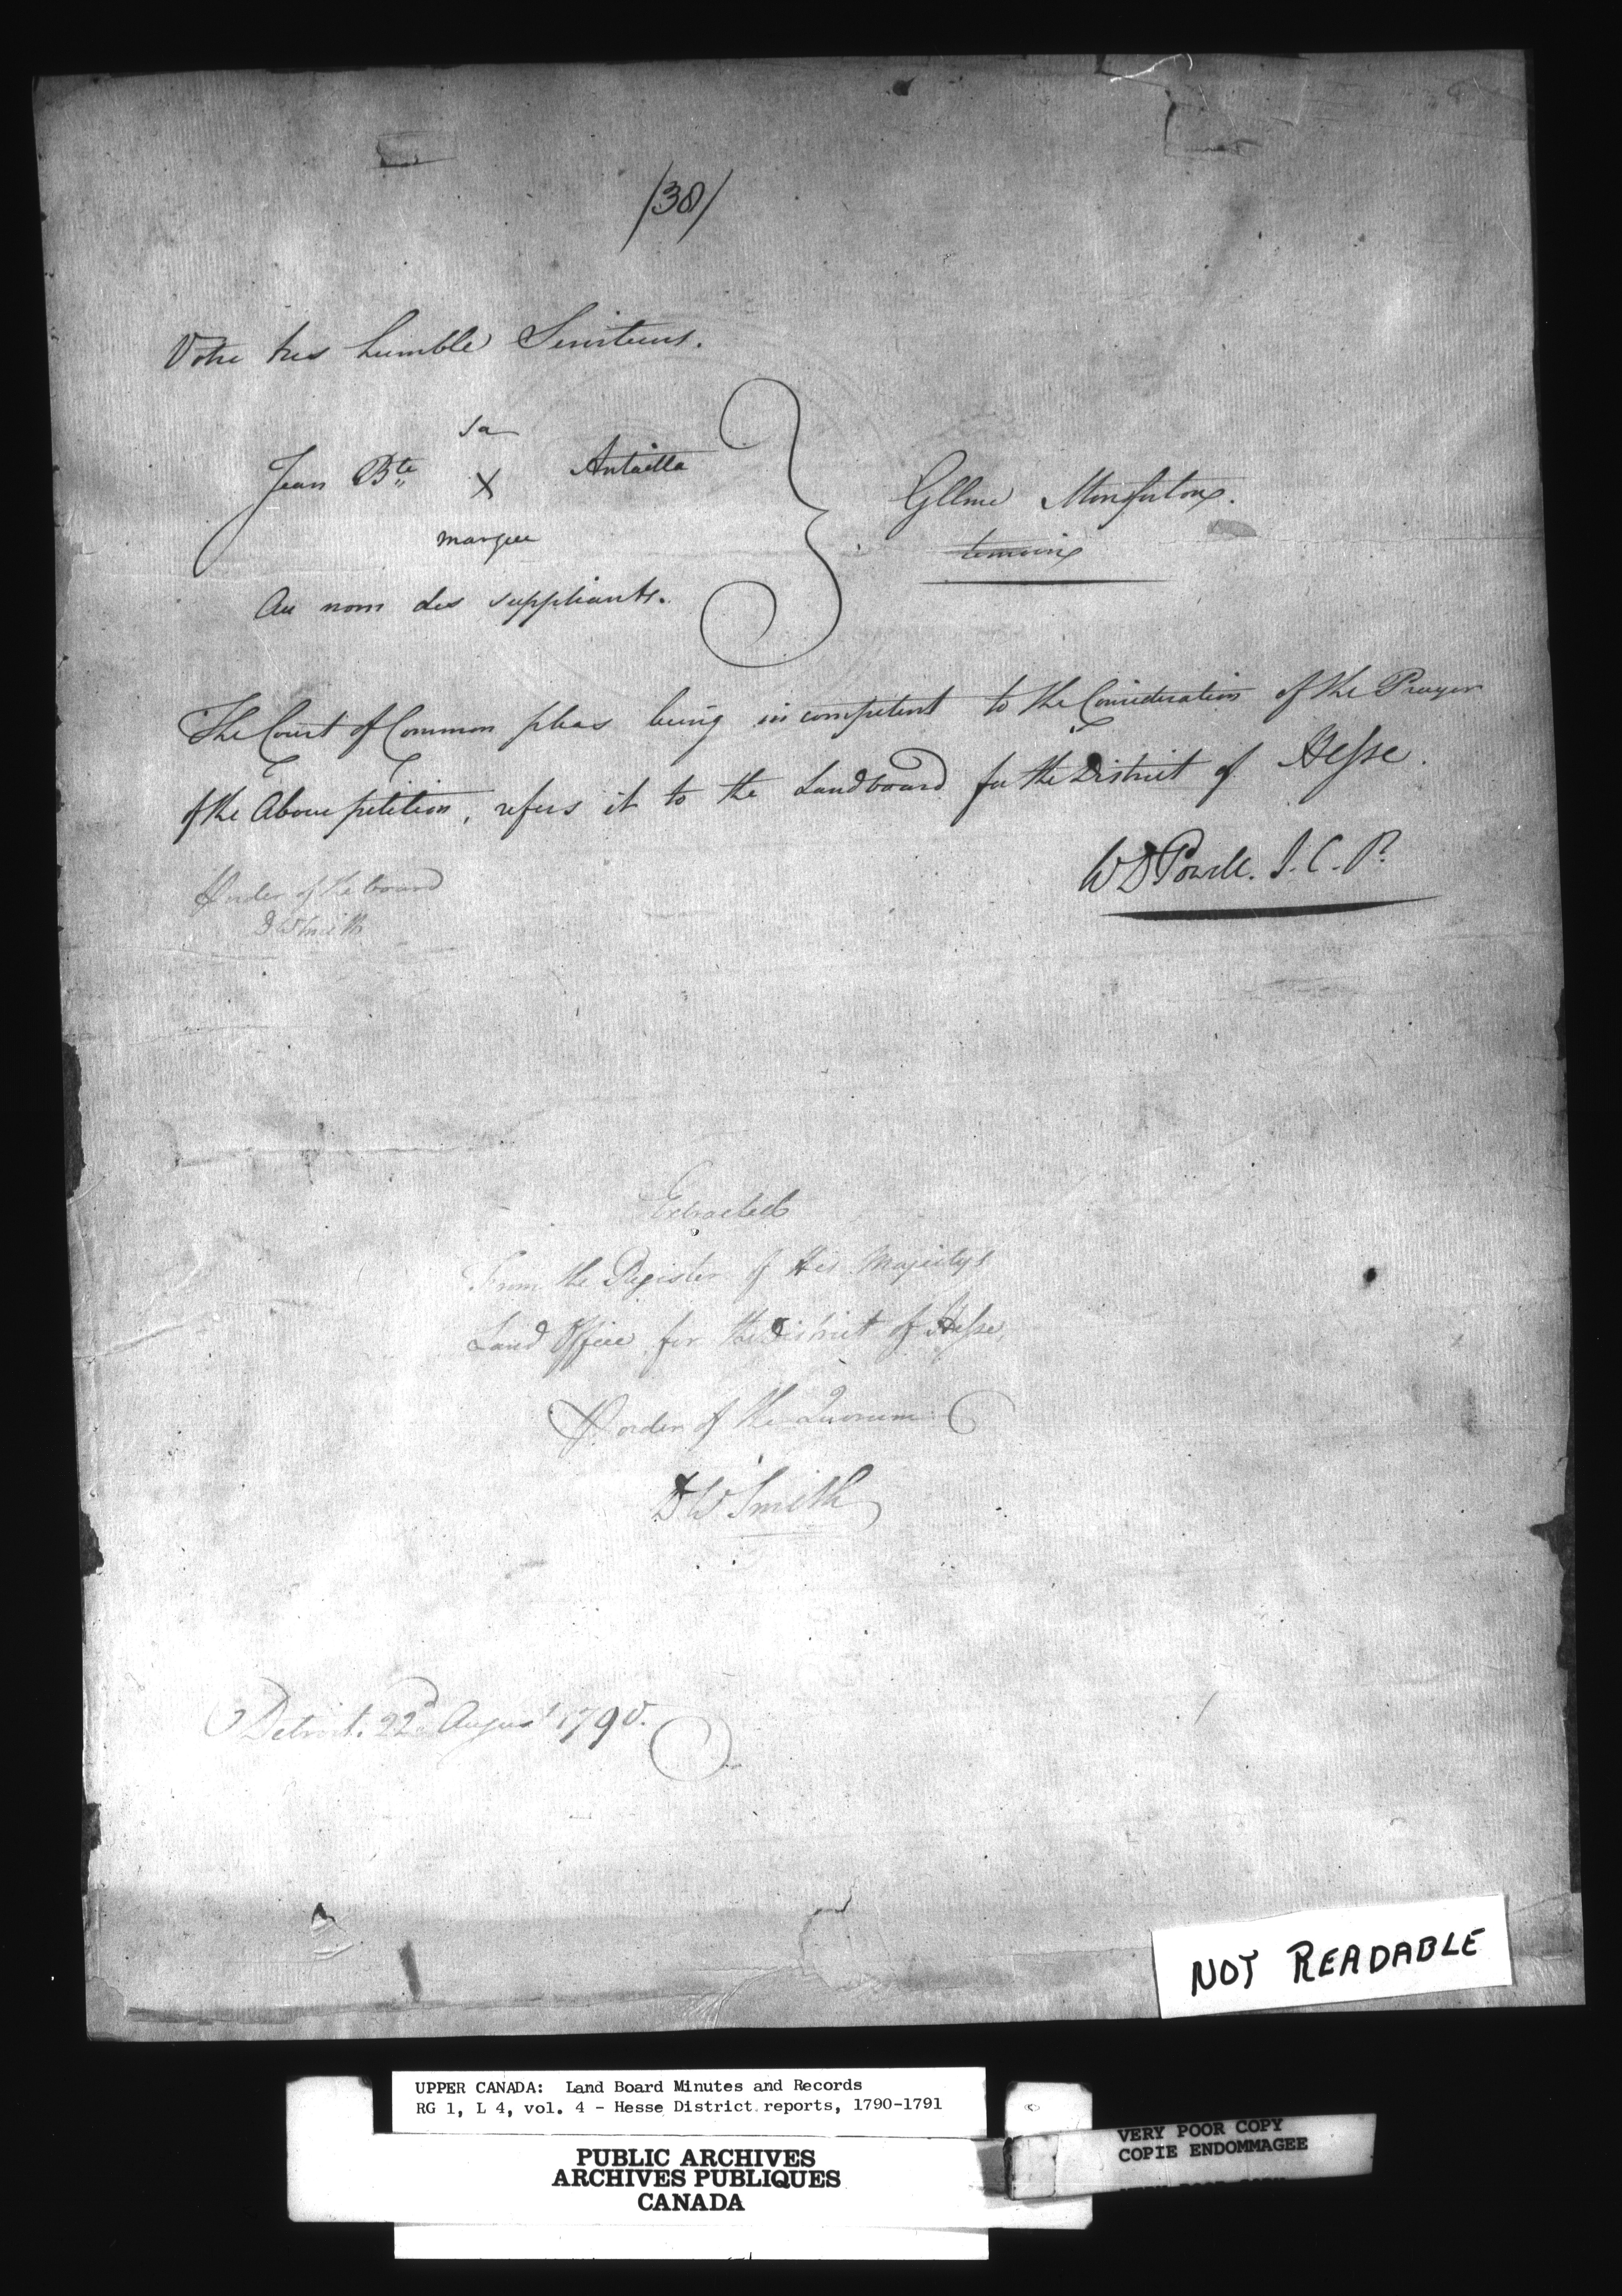 /38/
Votre tres humble Serviteurs.
sa
Jean Bte X Antailla
marque
Au nom des suppliants.
Gllme Monforton.
temoin
The Court of Common pleas being incompetent to the Consideration of the Prayer
of the Above petition, refers it to the Landboard for the District of Hesse.
WD Powell. J. C. P.
order of the board
DW Smith
Extracted
From the Register of His Majestys
Land Office for the District of Hesse,
order of the Quorum
DW Smith
Detroit. 22d August 1790.
NOT READABLE
UPPER CANADA: Land Board Minutes and Records
RG 1, L 4, vol. 4 - Hesse District reports, 1790-1791
PUBLIC ARCHIVES
ARCHIVES PUBLIQUES
CANADA
VERY POOR COPY
COPIE ENDOMMAGEE